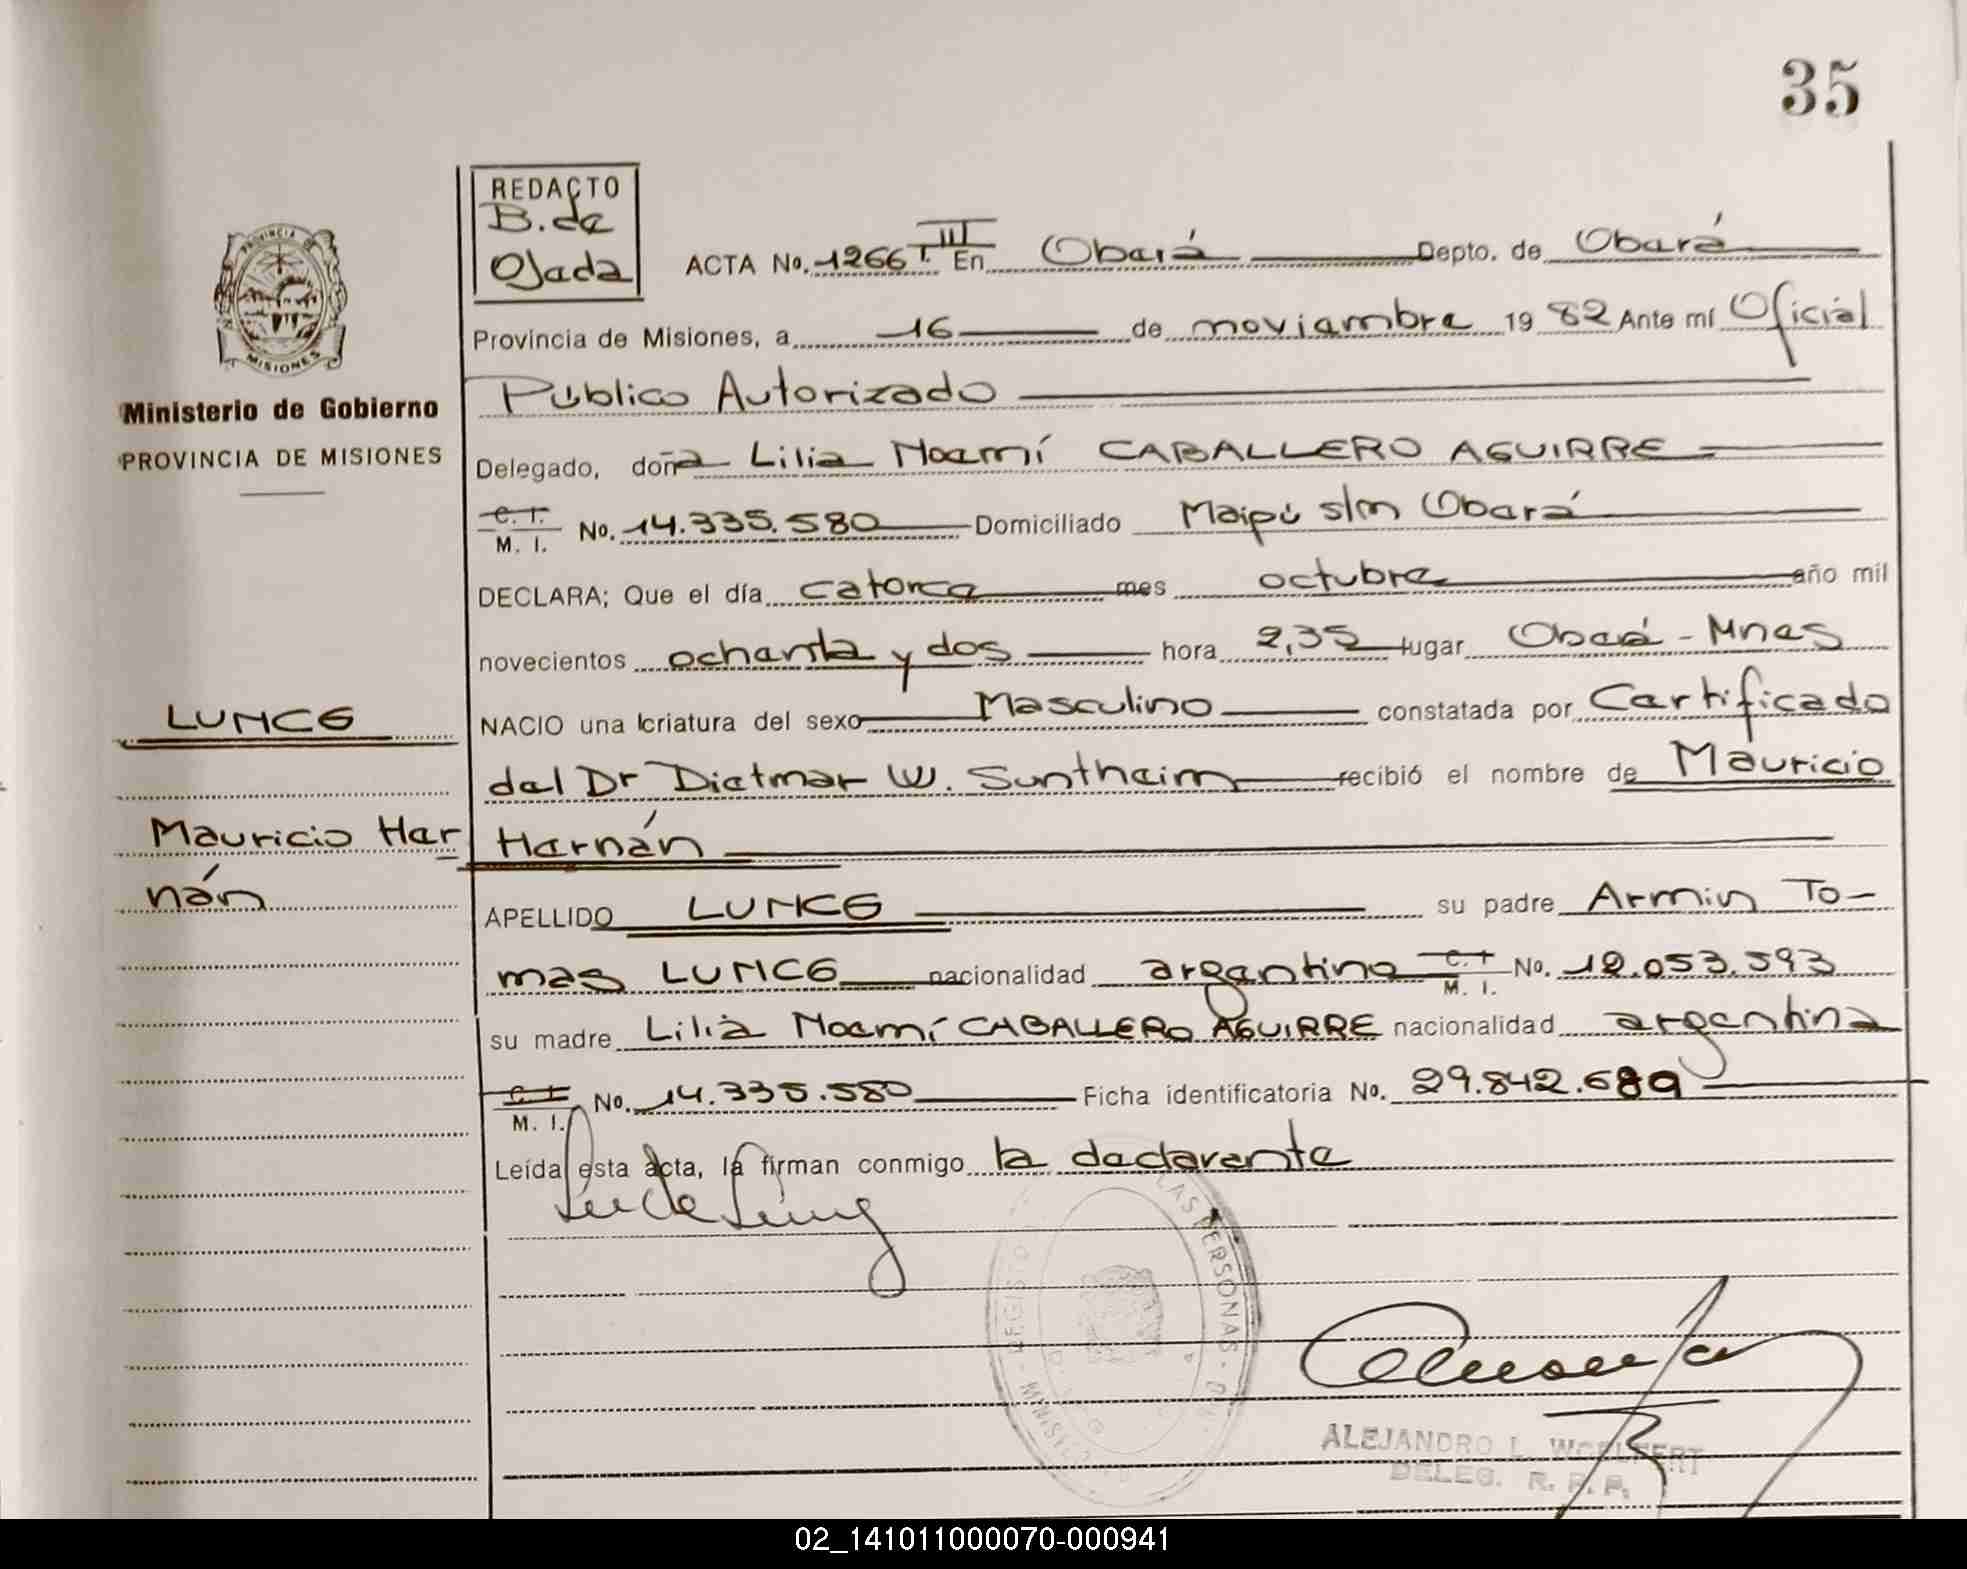 35
REDACTO
B. de
Ojeda
ACTA No. 1266 T. III En Oberá Depto. de Oberá
Provincia de Misiones, a 16 de noviembre 19 82 Ante mí Oficial
Público Autorizado
PROVINCIA DE MISIONES
Ministerio de Gobierno
PROVINCIA DE MISIONES
Delegado, doña Lilia Noemí CABALLERO AGUIRRE
C. I.
M. I. No. 14.335.580 Domiciliado Maipú s/n Oberá
DECLARA; Que el día catorce mes octubre año mil
novecientos ochenta y dos hora 2,35 lugar Oberá - Mnes
LUNCG
NACIO una criatura del sexo Masculino constatada por Certificado
del Dr Dietmar W. Suntheim recibió el nombre de Mauricio
Mauricio Her
nán
Hernán
APELLIDO LUNCG su padre Armin To-
mas LUNCG nacionalidad argentina C. I.
M. I. No. 12.053.593
su madre Lilia Noemí CABALLERO AGUIRRE nacionalidad argentina
C. I.
M. I. No. 14.335.580 Ficha identificatoria No. 29.842.689
Leída esta acta, la firman conmigo la declarante
LAS PERSONAS
ALEJANDRO L. WOELFERT
DELEG. R. P. P.
02_141011000070-000941